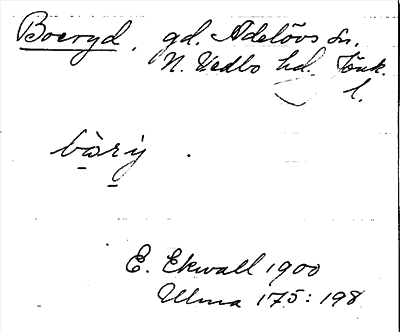 Boeryd, gd. Adelövs sn,
N. Vedbo hd. Jönk.
l.
bàrý.
E. Ekwall 1900
Ulma 175:198